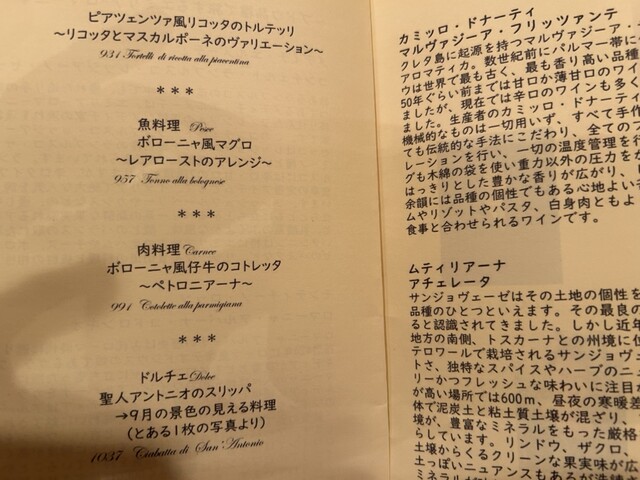 ピアツェンツァ風リコッタのトルテッリ
~リコッタとマスカルポーネのヴァリエーション~
931 Tortelli di ricotta alla piacentina
***
魚料理 Pesce
ボローニャ風マグロ
~レアローストのアレンジ~
957 Tonno alla bolognese
***
肉料理 Carnee
ボローニャ風仔牛のコトレッタ
~ペトロニアーナ~
991 Cotolette alla parmigiana
***
ドルチェ Dolce
聖人アントニオのスリッパ
→9月の景色の見える料理
(とある1枚の写真より)
1037 Ciabatta di San'Antonio
カミッロ・ドナーティ
マルヴァジーア・フリッツァンテ
クレタ島に起源を持つマルヴァジーア・
アロマティカ。数世紀前にパルマー帯に
ウは世界で最も古く、最も香り高い品種
50年ぐらい前までは甘口か薄甘口のワイ
ましたが、現在では辛口のワインも多く
ました。生産者のカミッロ・ドナーティ
機械的なものは一切用いず、すべて手作
ても伝統的な手法にこだわり、全てのフ
レーションを行い、一切の温度管理を行
グも木綿の袋を使い重力以外の圧力をか
はっきりとした豊かな香りが広がり、
余韻には品種の個性でもある心地よい
ムやリゾットやパスタ、白身肉ともよ
食事と合わせられるワインです。
ムティリアーナ
アチェレータ
サンジョヴェーゼはその土地の個性を
品種のひとつといえます。その最良の
ると認識されてきました。しかし近年
地方の南側、トスカーナとの州境に位
テロワールで栽培されるサンジョヴェ
トさ、独特なスパイスやハーブのニュ
リーかつフレッシュな味わいに注目が
が高い場所では600m、昼夜の寒暖差
体で泥灰土と粘土質土壌が混ざり、
境が、豊富なミネラルをもった厳格
らしています。リンドウ、ザクロ、
土壌からくるクリーンな果実味が広
土っぽいニュアンスもあるが洗練